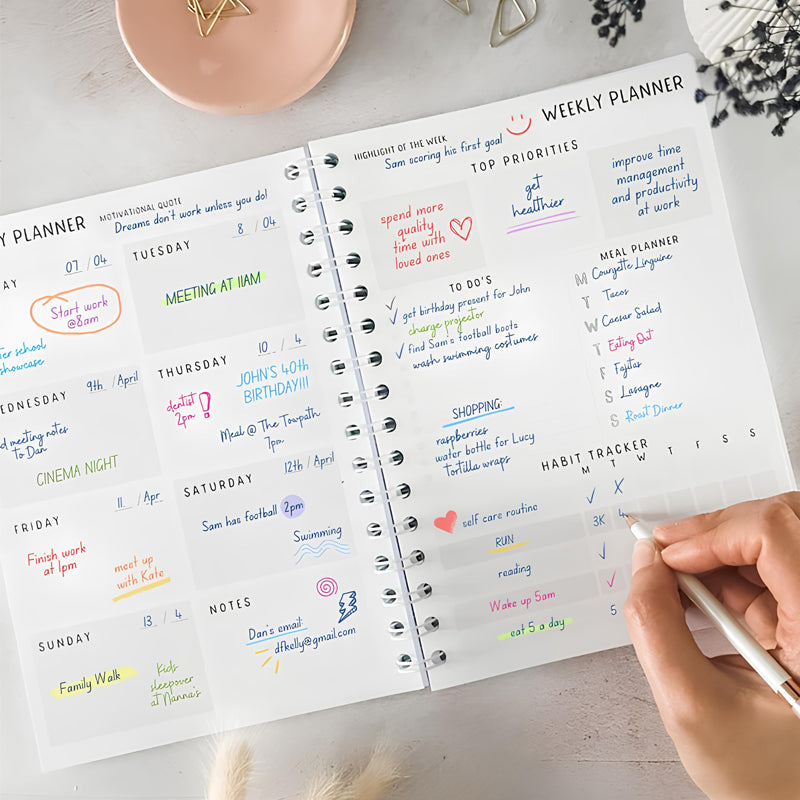 Y PLANNER
MOTIVATIONAL QUOTE
Dreams don't work unless you do!
AY
07 / 04
Start work
@8am
ter school
showcase
TUESDAY
8 / 04
MEETING AT 11AM
EDNESDAY
9th / April
d meeting notes
to Dan
CINEMA NIGHT
THURSDAY
10 / 4
dentist
2pm !
JOHN'S 40th
BIRTHDAY!!!
Meal @ The Towpath
7pm
FRIDAY
11 / Apr
Finish work
at 1pm
meet up
with Kate
SATURDAY
12th / April
Sam has football 2pm
Swimming
SUNDAY
13 / 4
Family Walk
Kids
sleepover
at Nanna's
NOTES
Dan's email:
dfkelly@gmail.com
HIGHLIGHT OF THE WEEK
Sam scoring his first goal
WEEKLY PLANNER
TOP PRIORITIES
spend more
quality
time with
loved ones
get
healthier
improve time
management
and productivity
at work
TO DO'S
get birthday present for John
charge projector
find Sam's football boots
wash swimming costumes
SHOPPING:
raspberries
water bottle for Lucy
Tortilla wraps
MEAL PLANNER
M Courgette Linguine
T Tacos
W Caesar Salad
T Eating Out
F Fajitas
S Lasagne
S Roast Dinner
HABIT TRACKER
M T W T F S S
self care routine ✓ X
RUN 3K 4
reading ✓
Wake up 5am ✓
eat 5 a day 5